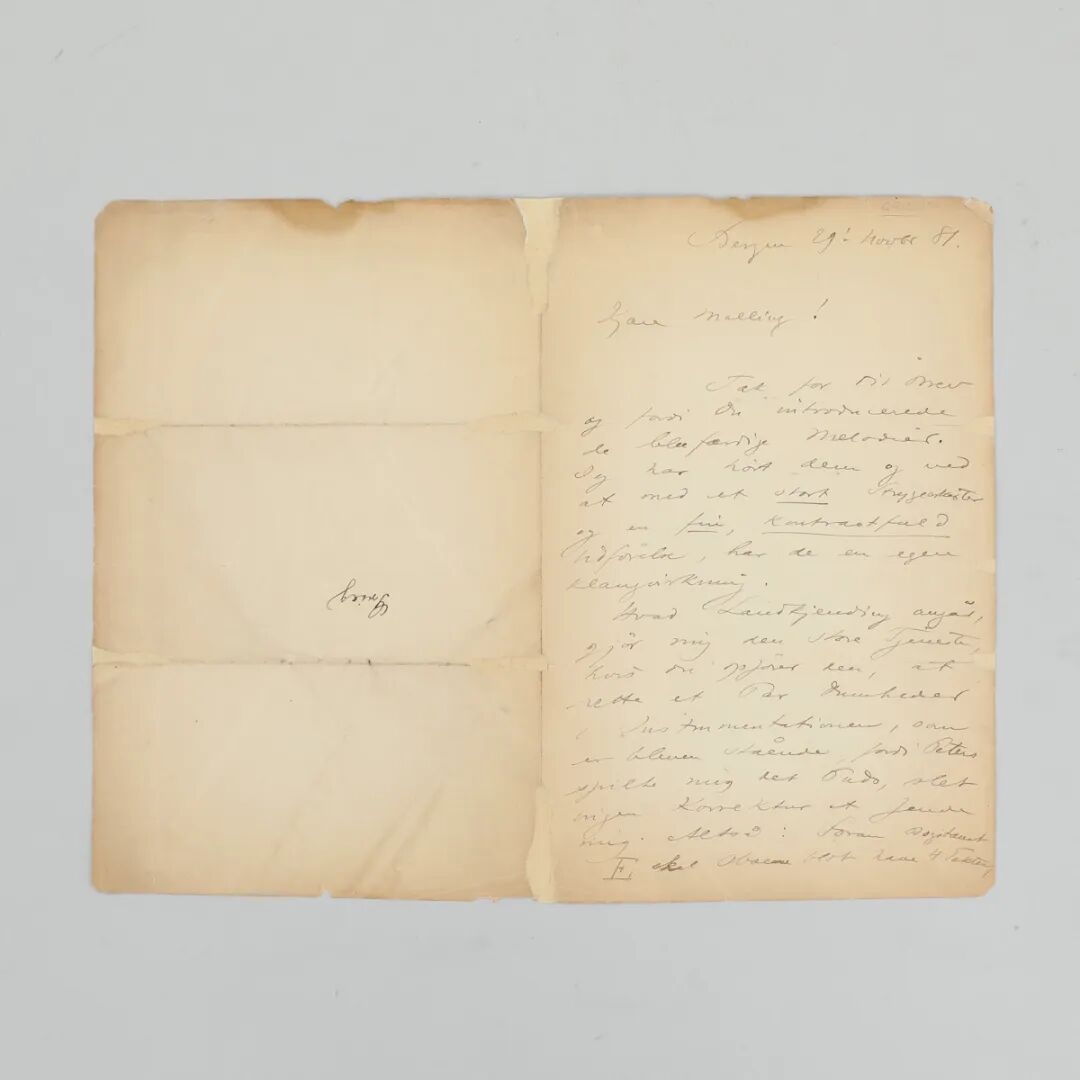 Grieg
Bergen 29' Novbr 81.
Kjære Malling!
Tak for dit Brev
og fordi Du introducerede
de blufærdige Melodier.
Jeg har hört dem og ved
at med et stort Strygeorkester
og en fin, kontrastfuld
Udförelse, har de en egen
Klangvirkning.
Hvad Landkjending angår,
gjör mig den store Tjeneste,
hvis Du opförer den, at
rette et Par Dumheder
i Instrumentationen, som
er bleven stående, fordi Peters
spilte mig det Puds, slet
ingen Korrektur at sende
mig. Altså: Foran Bogstavet
F skal Oboen blot have 4 Takter,